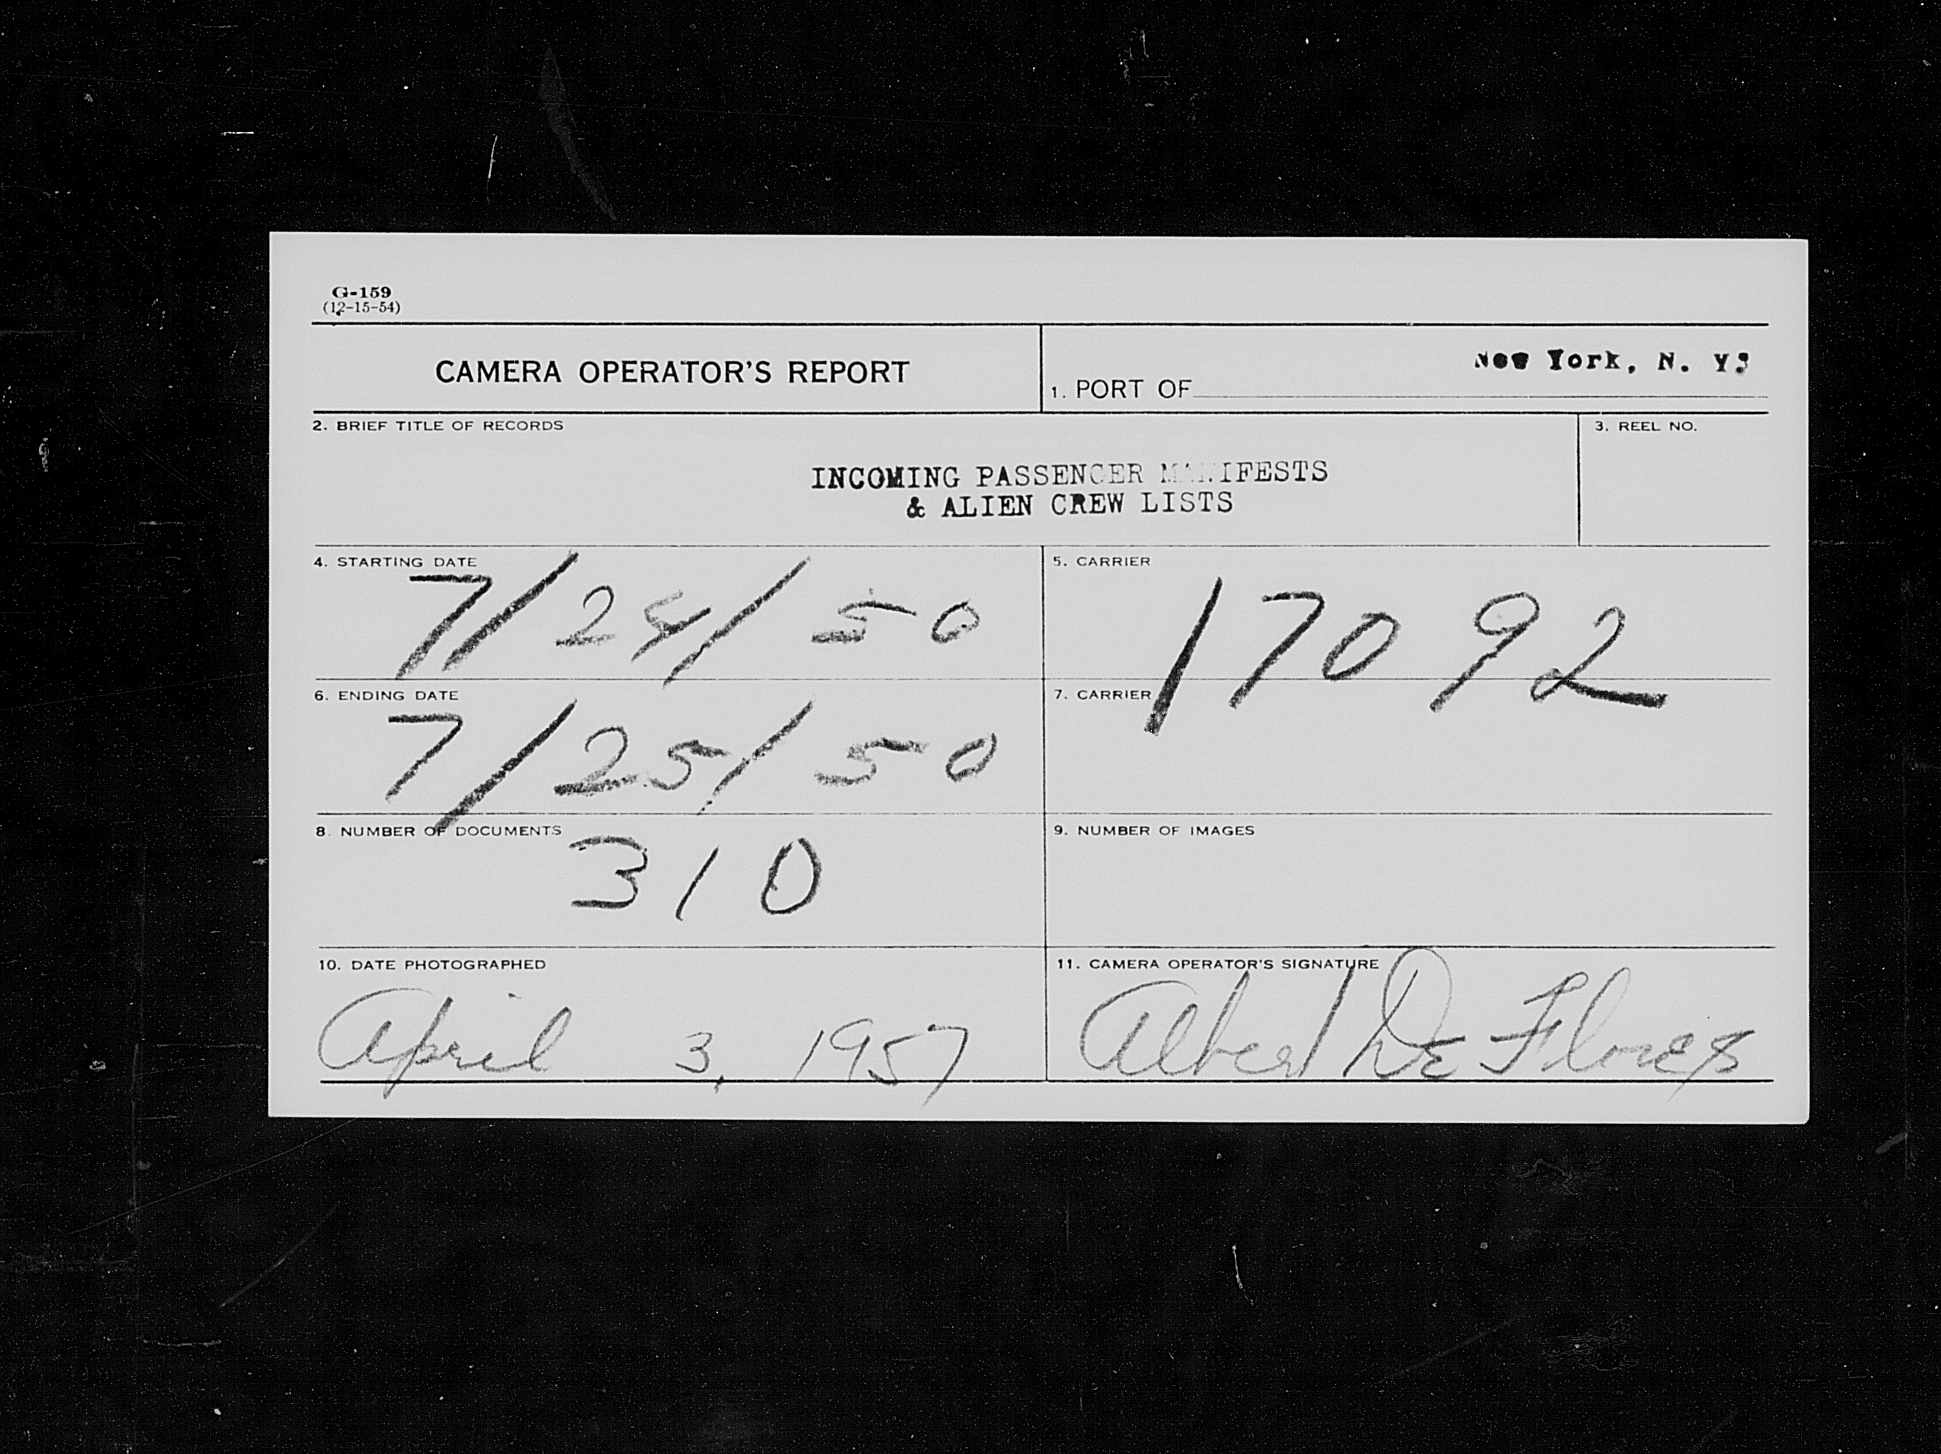 G-159
(12-15-54)
CAMERA OPERATOR'S REPORT
1. PORT OF New York, N. Y.
2. BRIEF TITLE OF RECORDS
3. REEL NO.
INCOMING PASSENGER MANIFESTS
& ALIEN CREW LISTS
4. STARTING DATE
7/24/50
5. CARRIER
17092
6. ENDING DATE
7/25/50
7. CARRIER
8. NUMBER OF DOCUMENTS
310
9. NUMBER OF IMAGES
10. DATE PHOTOGRAPHED
April 3, 1957
11. CAMERA OPERATOR'S SIGNATURE
Albert De Flores